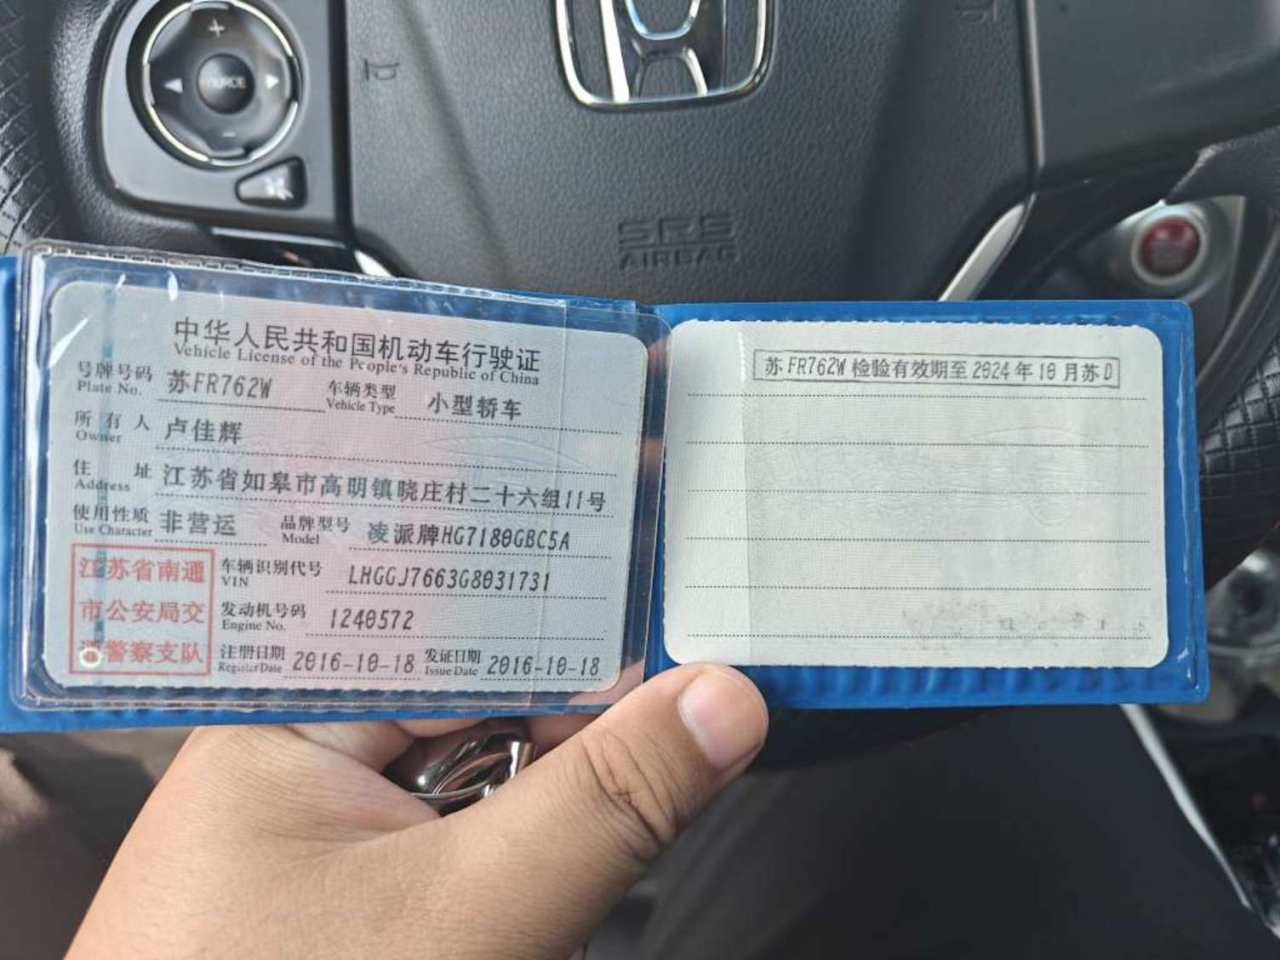 SOURCE
SRS
AIRBAG
中华人民共和国机动车行驶证
Vehicle License of the People's Republic of China
号牌号码 苏FR762W 车辆类型 小型轿车
Plate No. Vehicle Type
所有人 卢佳辉
Owner
住址 江苏省如皋市高明镇晓庄村二十六组11号
Address
使用性质 非营运 品牌型号 凌派牌HG7180GBC5A
Use Character Model
江苏省南通
市公安局交
通警察支队
车辆识别代号 LHGGJ7663G8031731
VIN
发动机号码 1240572
Engine No.
注册日期 2016-10-18 发证日期 2016-10-18
Register Date Issue Date
苏FR762W检验有效期至2024年10月苏D